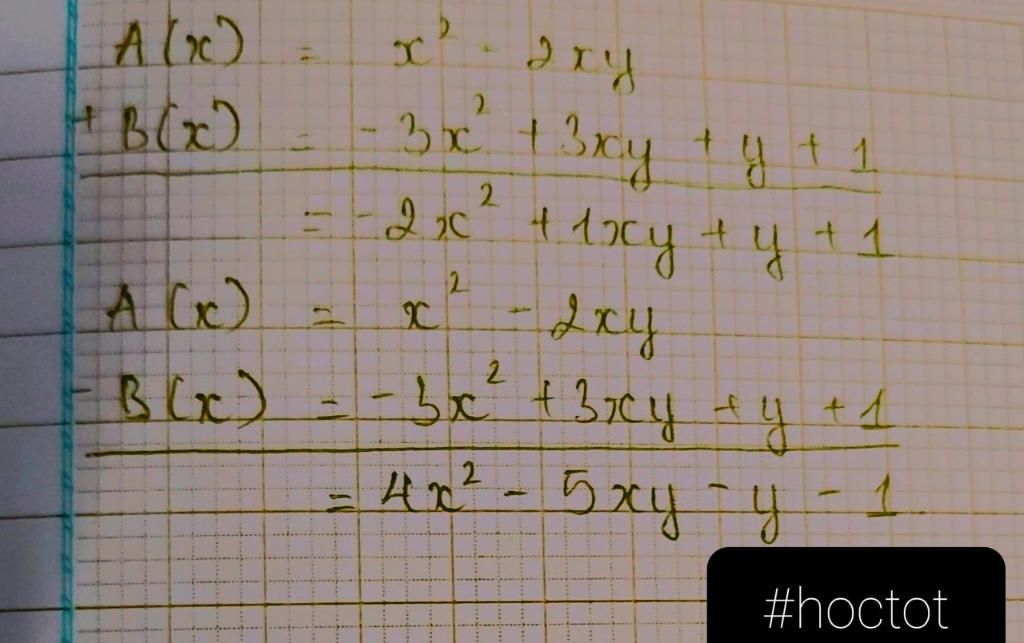 A(x) = x² - 2xy
+ B(x) = -3x² + 3xy + y + 1
= -2x² + 1xy + y + 1
A(x) = x² - 2xy
- B(x) = -3x² + 3xy + y + 1
= 4x² - 5xy - y - 1
#hoctot